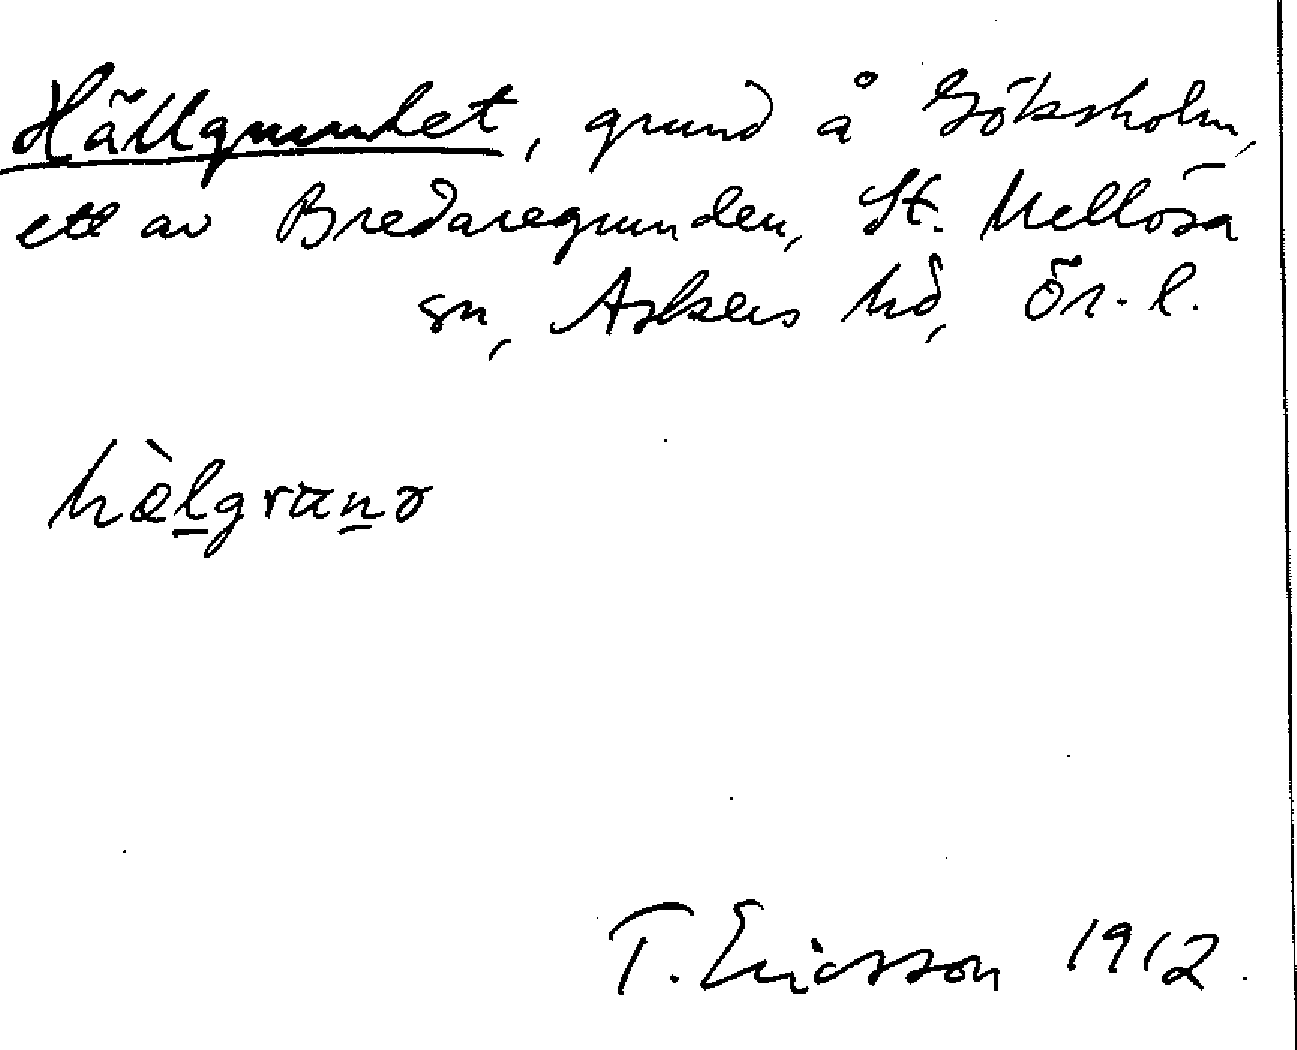 Hällgrundet, grund å Göksholm,
ett av Bredaregrunden, St. Mellösa
sn, Askers hd, Ör. l.
hæ̀lgrunə
T. Ericsson 1912